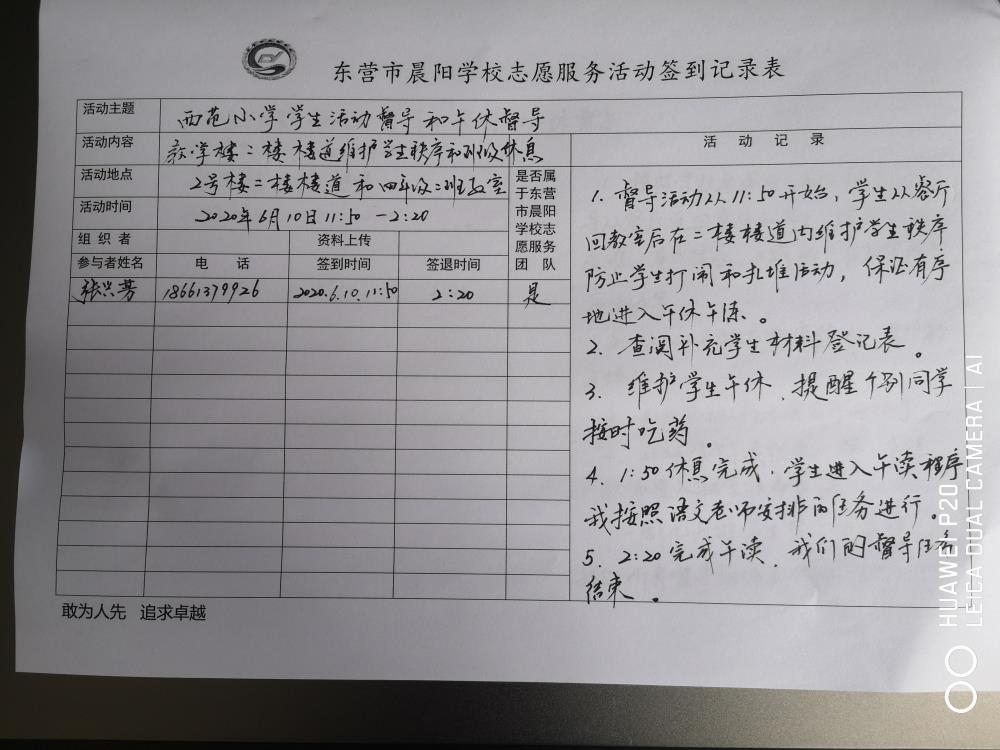 东营市晨阳学校志愿服务活动签到记录表
活动主题 西范小学学生活动督导和午休督导
活动内容 教学楼二楼楼道维护学生秩序和班级休息
活动地点 2号楼二楼楼道和四年级二班教室
活动时间 2020年6月10日11:50-2:20
组织者 资料上传
是否属于东营市晨阳学校志愿服务团队
参与者姓名 电话 签到时间 签退时间
张兴芳 18661379926 2020.6.10.11:50 2:20 是
活动记录
1. 督导活动从11:50开始,学生从餐厅
回教室后在二楼楼道内维护学生秩序
防止学生打闹和扎堆活动,保证有序
地进入午休午练。
2. 查阅补充学生材料登记表。
3. 维护学生午休、提醒个别同学
按时吃药。
4. 1:50休息完成,学生进入午读程序
我按照语文老师安排的任务进行。
5. 2:20完成午读,我们的督导任务
结束。
敢为人先 追求卓越
HUAWEI P20
LEICA DUAL CAMERA | AI